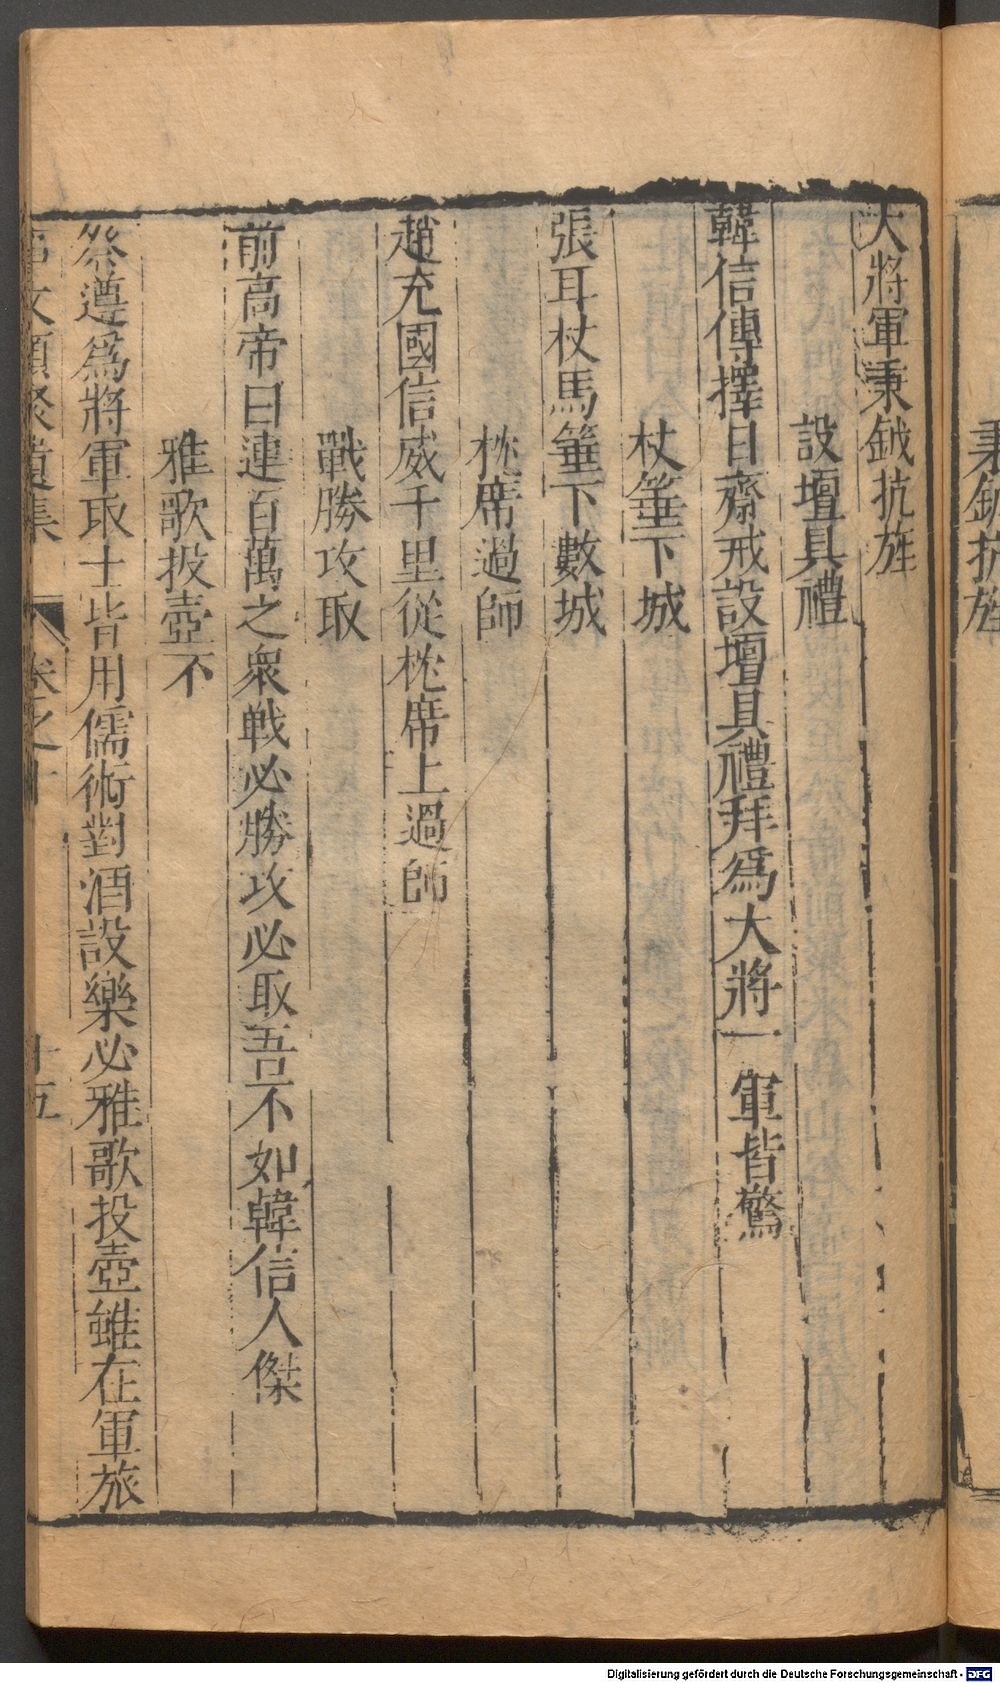 秉鉞抗旌
大將軍秉鉞抗旌
設壇具禮
韓信傳擇日齋戒設壇具禮拜爲大將一軍皆驚
杖箠下城
張耳杖馬箠下數城
枕席過師
趙充國信威千里從枕席上過師
戰勝攻取
前高帝曰連百萬之衆戦必勝攻必取吾不如韓信人傑
雅歌投壺不
祭遵爲將軍取士皆用儒術對酒設樂必雅歌投壺雖在軍旅
文類聚遺集 卷之十 十五
Digitalisierung gefördert durch die Deutsche Forschungsgemeinschaft - DFG